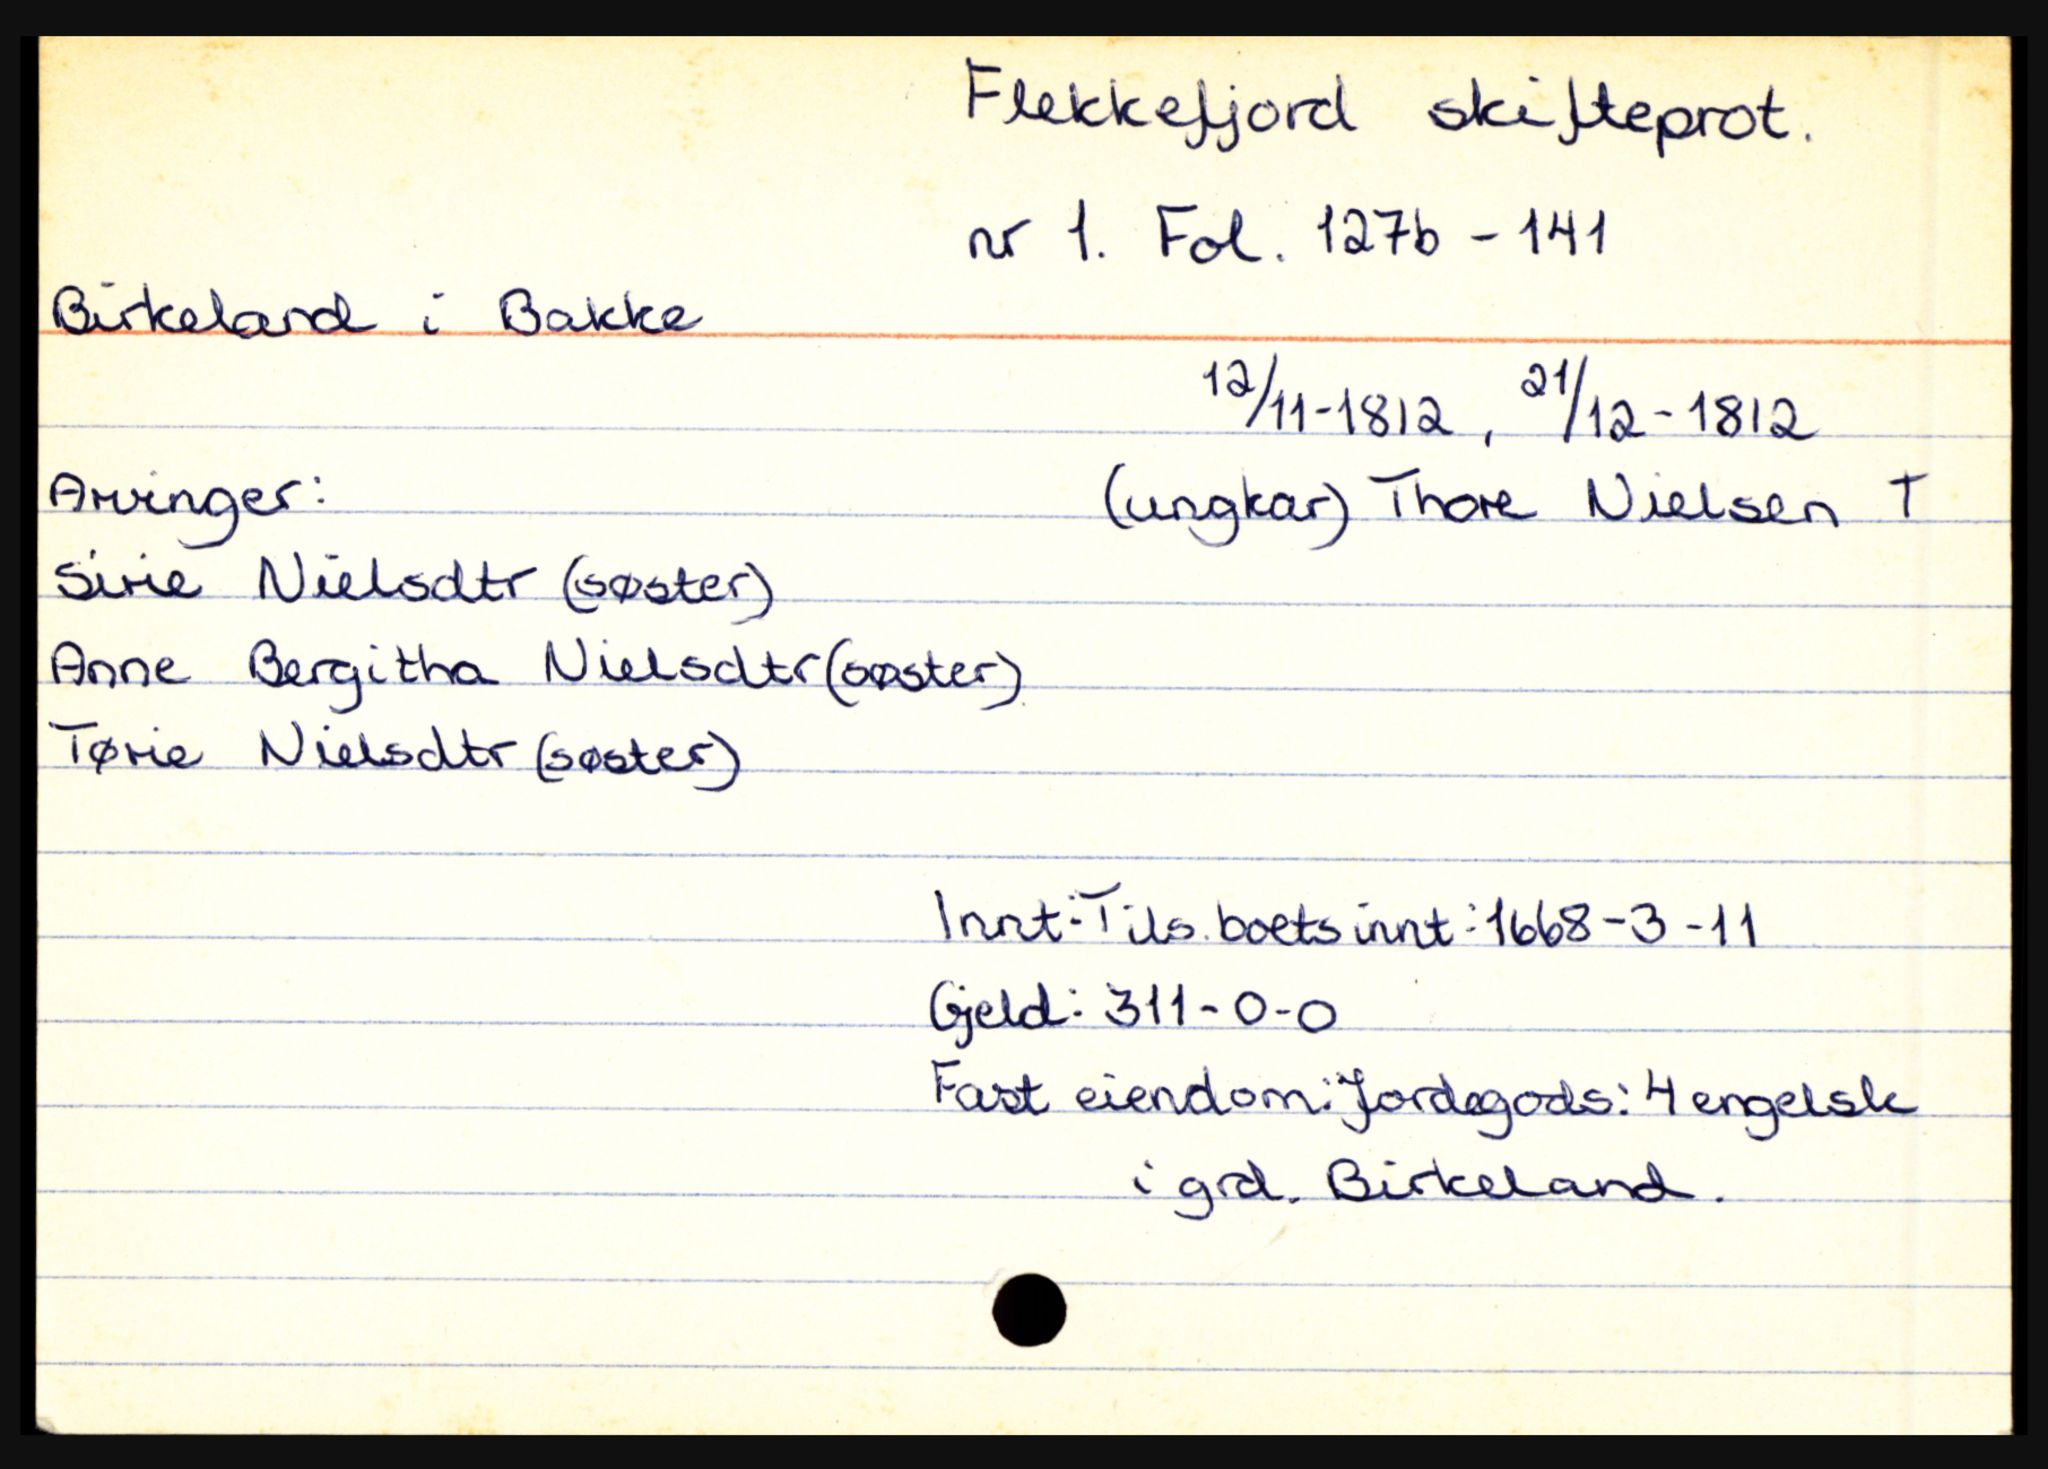 Flekkefjord skifteprot.
nr 1. Fol. 127b - 141
Birkeland i Bakke
12/11-1812, 21/12-1812
Arvinger:
(ungkar) Thore Nielsen †
Sirie Nielsdtr (søster)
Anne Bergitha Nielsdtr (søster)
Tørie Nielsdtr (søster)
Innt: Tils. boets innt: 1668-3-11
Gjeld: 311-0-0
Fast eiendom: Jordegods: 4 engelsk
i grd. Birkeland.